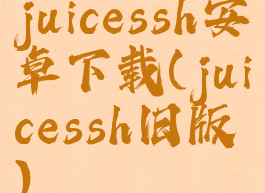 juicessh安
卓下载(jui
cessh旧版
)